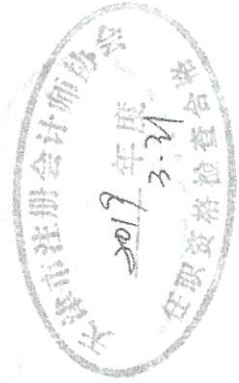 天津市注册会计师协会
2019 年度
任职资格检查合格